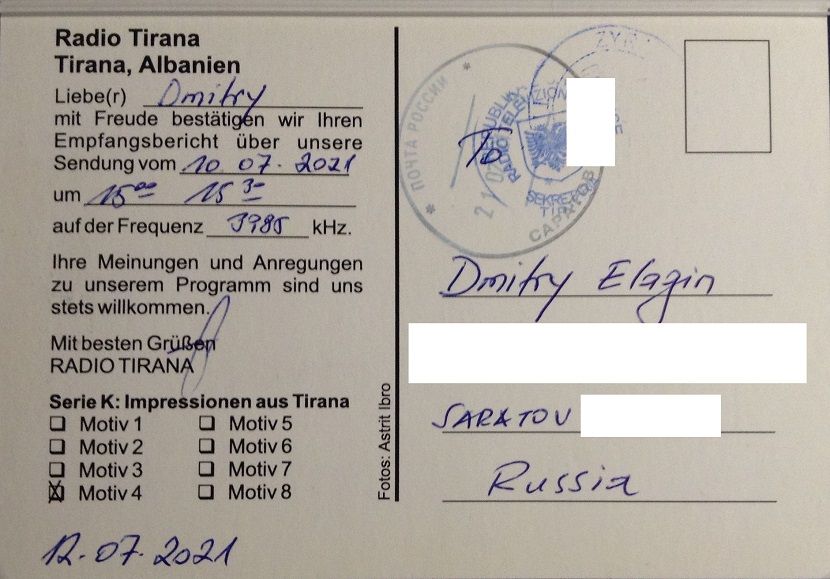 Radio Tirana
Tirana, Albanien
Liebe(r) Dmitry
mit Freude bestätigen wir Ihren
Empfangsbericht über unsere
Sendung vom 10 07. 2021
um 15 00 15 30
auf der Frequenz 3985 kHz.
Ihre Meinungen und Anregungen
zu unserem Programm sind uns
stets willkommen.
Mit besten Grüßen
RADIO TIRANA
Serie K: Impressionen aus Tirana
Motiv 1
Motiv 2
Motiv 3
Motiv 4
Motiv 5
Motiv 6
Motiv 7
Motiv 8
12.07.2021
Fotos: Astrit Ibro
ПОЧТА РОССИИ
САРАТОВ
To
Dmitry Elagin
SARATOV
Russia